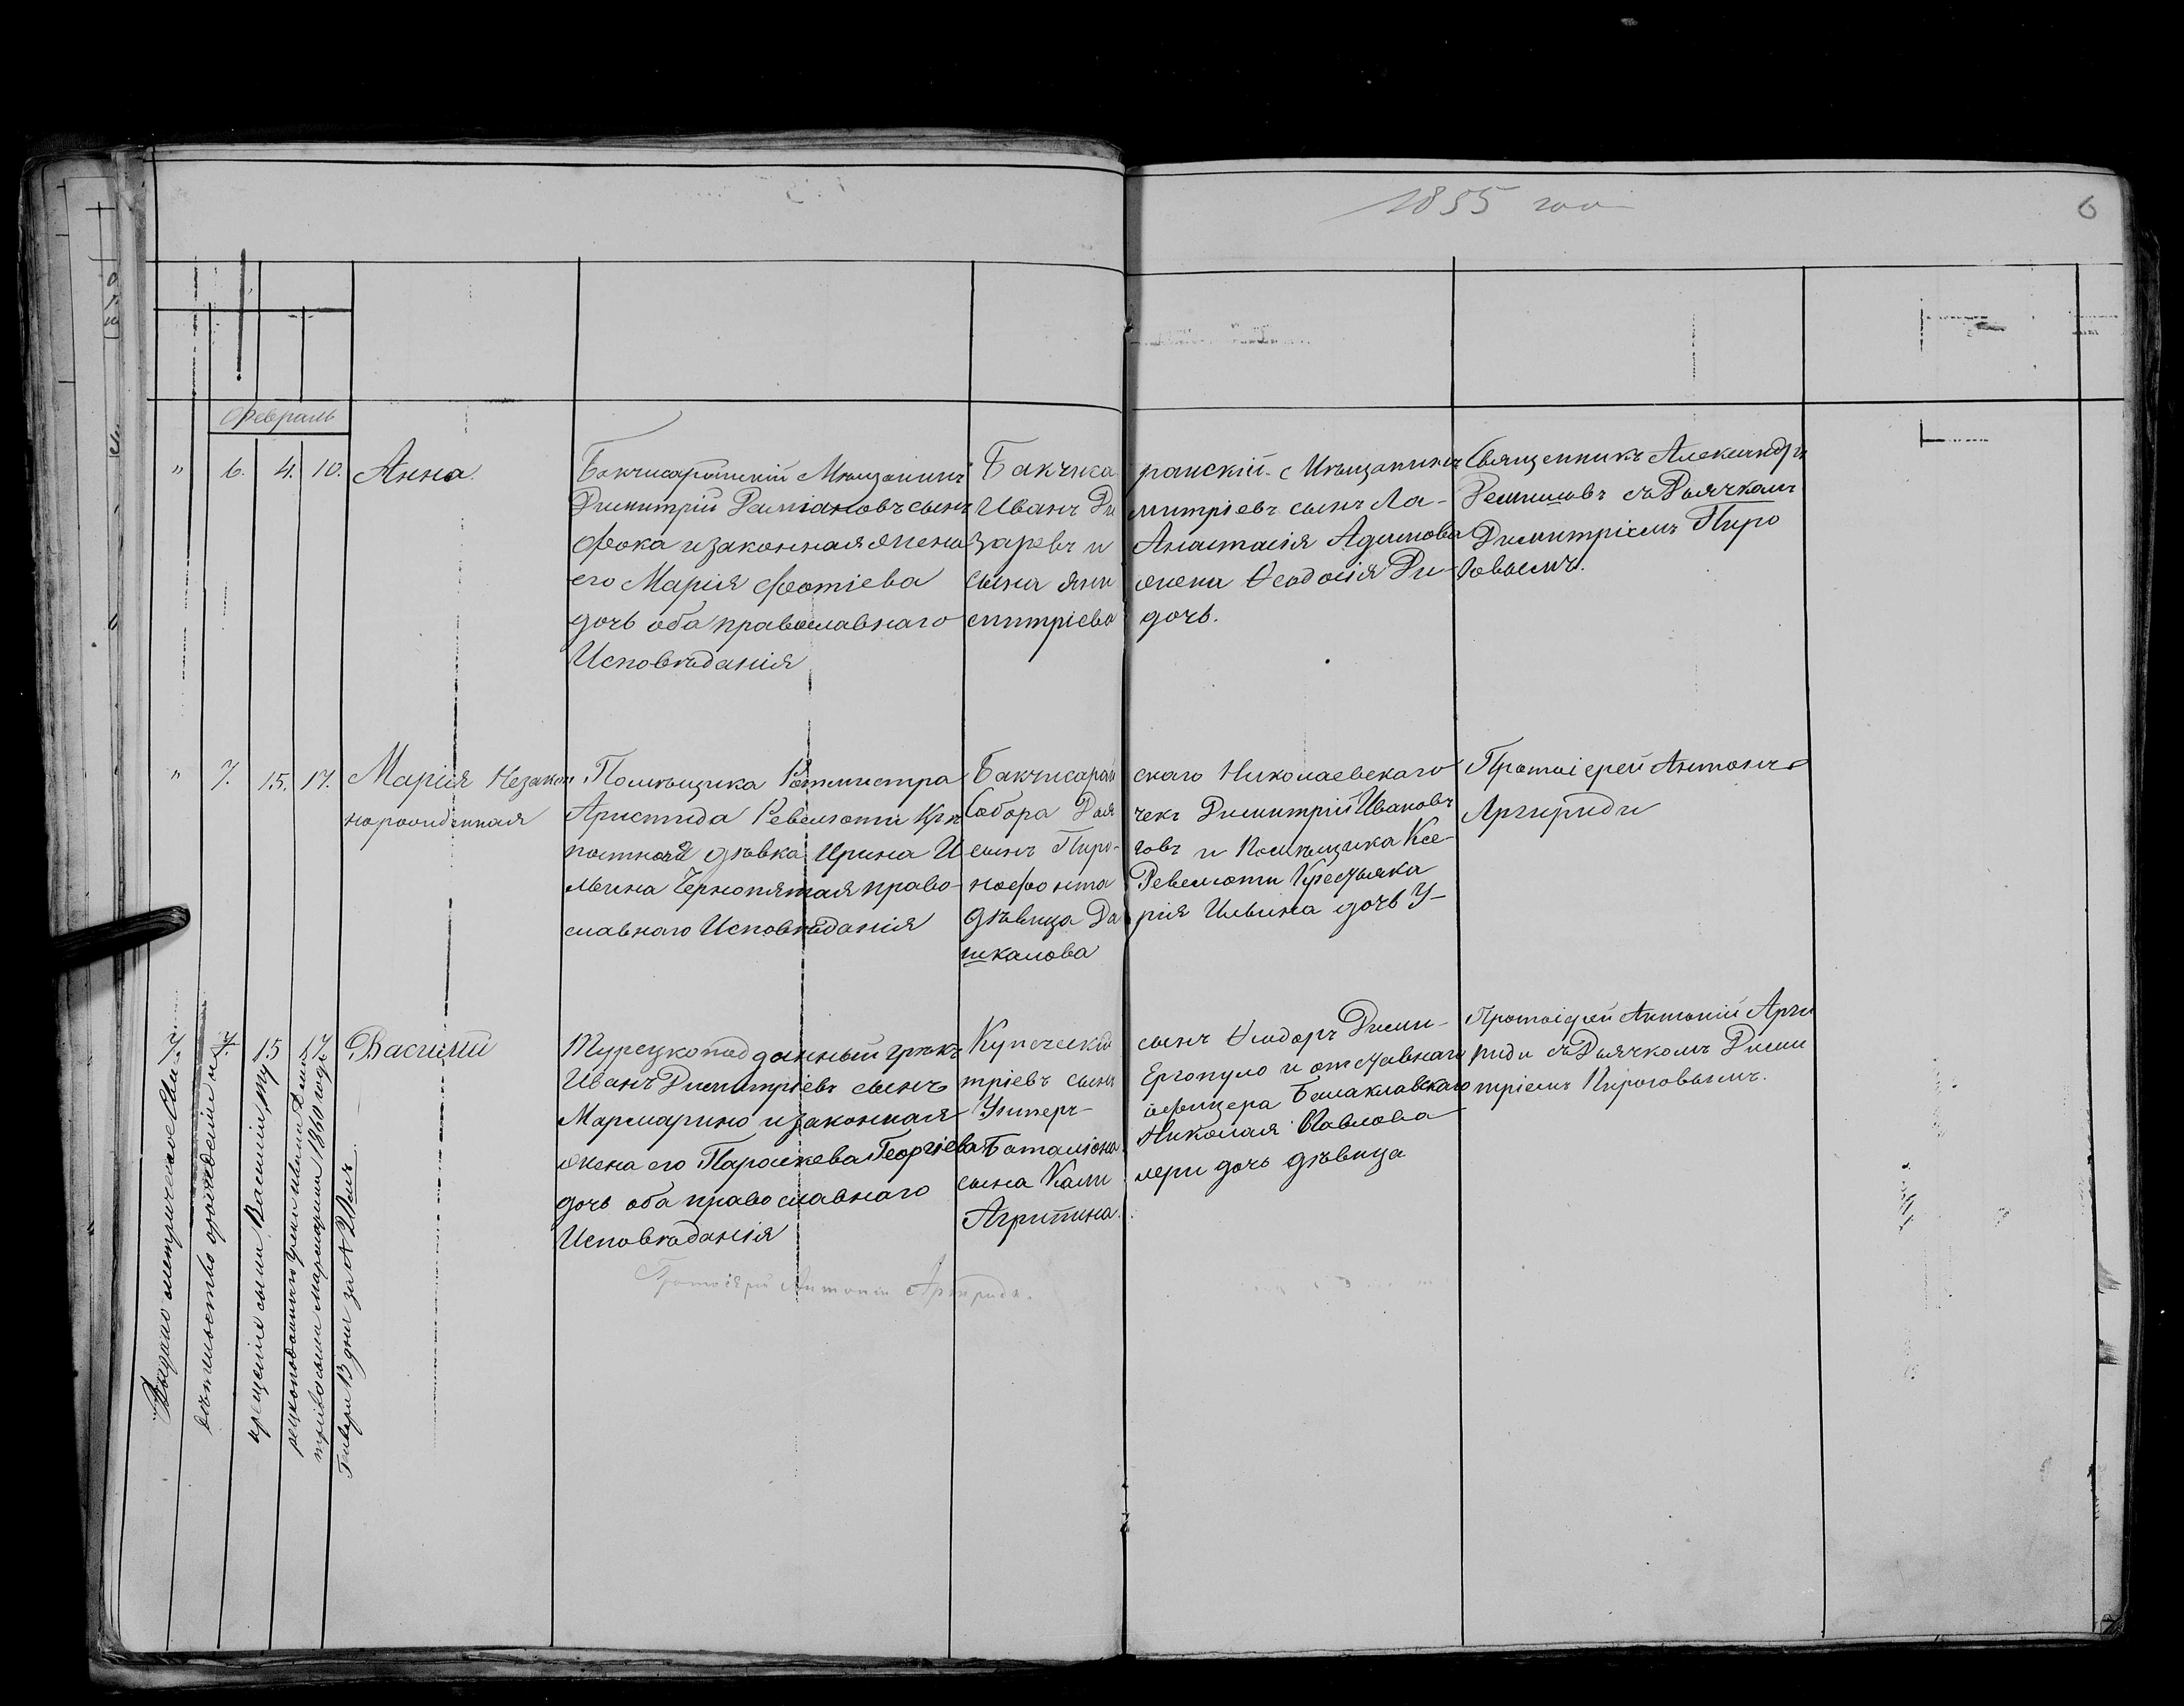 1855 года
6
Февраль
" 6. 4. 10. Анна
Бакчисарайский Мещанинъ
Димитрий Даміановъ сынъ
Фока и законная жена
его Марія Фотіева
дочь оба православнаго
Исповѣданія
Бакчиса райский Мѣщанинъ
Иванъ Ди митріевъ сынъ Ла-
заревъ и Анастасія Адамова
сына жени жени Ѳеодосія Ди-
митріева дочь.
Священникъ Александръ
съ Дьячкомъ
Димитріемъ Пиро
говымъ.
" 7. 15. 17. Марія Незакон
норожденная
Помѣщика Ротмистра
Аристида Ревелиоти Крѣ
постной дѣвка Ирина И
льина Чернопятая право-
славнаго Исповѣданія
Бакчисарай скаго Николаевскаго
Собора Дья чекъ Димитрий Ивановъ
сынъ Пиро- говъ и Помѣщика Ксе-
нофонта Ревелиоти Крестьянка
дѣвица Да рія Ильина дочь У-
шкалова
Протоіерей Антоній
Аргириди
7. 7. 15 17 Василий
Турецкоподданный грекъ
Иванъ Димитріевъ сынъ
Мармарино и законная
жена его Параскева Георгіева
дочь оба православнаго
Исповѣданія
Купеческій сынъ Ѳеодоръ Дими-
тріевъ сынъ Ергопуло и отставнаго
Унтеръ- офицера Балаклавскаго
Баталіона Николая Павлова
сына Кали лери дочь дѣвица
Агрипина.
Протоіерей Антоній Арги
риди съ Дьячкомъ Дими
тріемъ Пироговымъ.
Протоіерей Антоній Аргириди.
Выдано метрическое Сви-
дѣтельство о рожденіи и
крещеніи сына Василія, ту-
рецкоподданнаго грека Ивана Дими-
тріева сына Мармарино 1860 года
Генваря 13 дня за № 2мъ